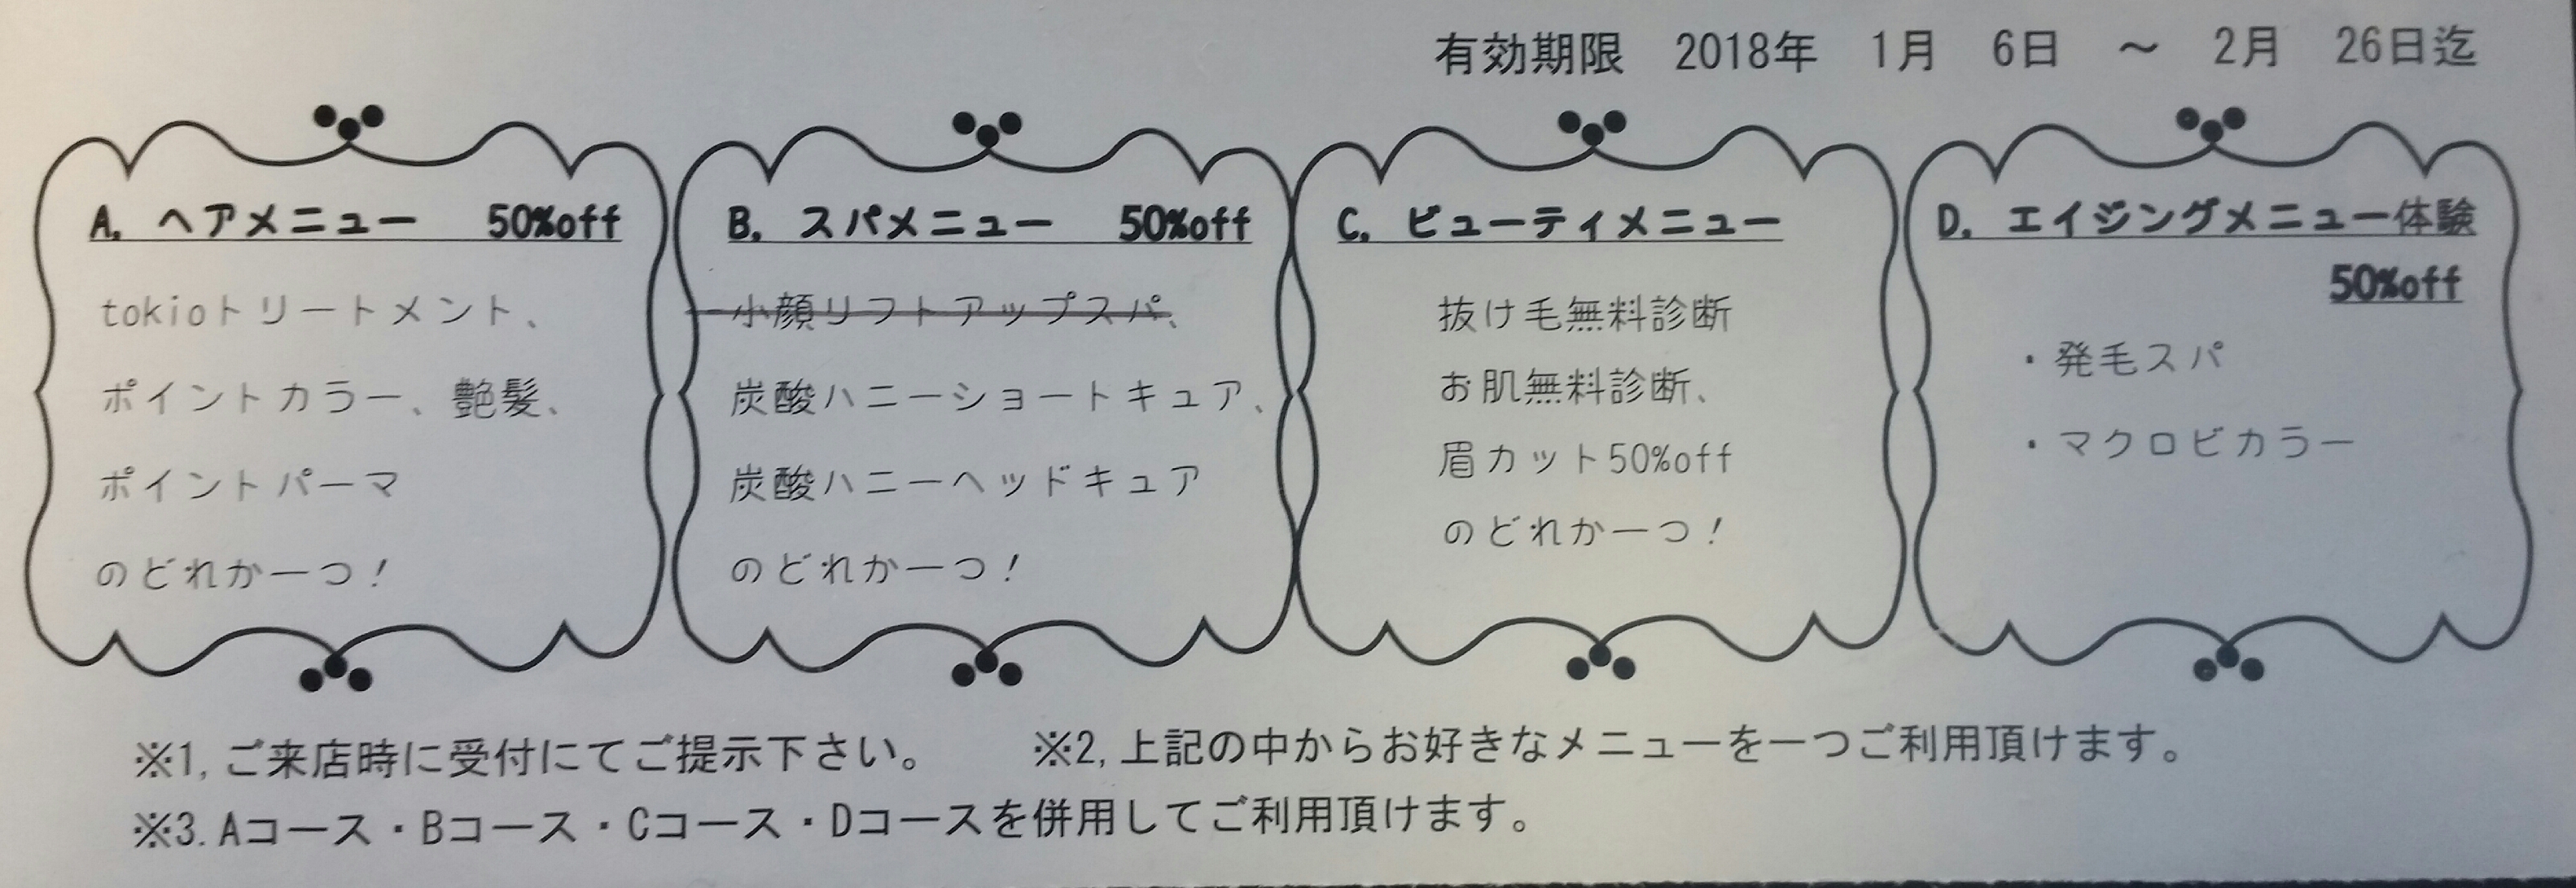 有効期限　2018年　1月　6日　～　2月　26日迄
A. ヘアメニュー　50%off
tokioトリートメント、
ポイントカラー、艶髪、
ポイントパーマ
のどれか一つ！
B. スパメニュー　50%off
小顔リフトアップスパ、
炭酸ハニーショートキュア、
炭酸ハニーヘッドキュア
のどれか一つ！
C. ビューティメニュー
抜け毛無料診断
お肌無料診断、
眉カット50%off
のどれか一つ！
D. エイジングメニュー体験
50%off
・発毛スパ
・マクロビカラー
※1,ご来店時に受付にてご提示下さい。　※2,上記の中からお好きなメニューを一つご利用頂けます。
※3.Aコース・Bコース・Cコース・Dコースを併用してご利用頂けます。